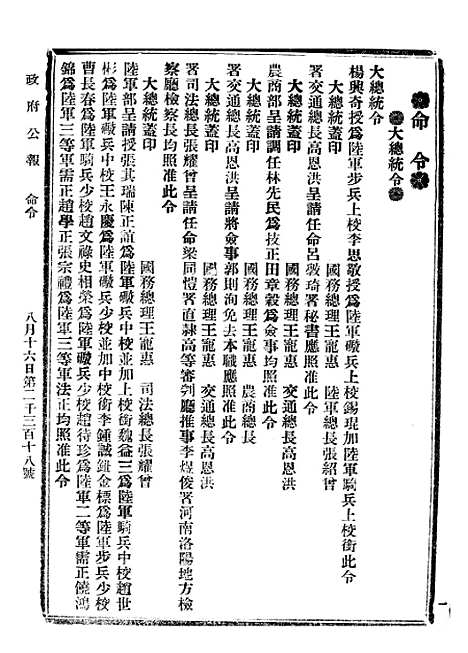 命令
大總統令
大總統令
楊興奇授爲陸軍步兵上校李恩敬授爲陸軍礮兵上校錫琨加陸軍騎兵上校銜此令
大總統蓋印
國務總理王寵惠 陸軍總長張紹曾
署交通總長高恩洪呈請任命呂琦署秘書應照准此令
大總統蓋印
國務總理王寵惠 交通總長高恩洪
農商部呈請調任林先民爲技正田章榖爲僉事均照准此令
大總統蓋印
國務總理王寵惠 農商總長
署交通總長高恩洪呈請將僉事郭則洵免去本職應照准此令
大總統蓋印
國務總理王寵惠 交通總長高恩洪
署司法總長張耀曾呈請任命梁同愷署直隸高等審判廳推事李煜俊署河南洛陽地方檢
察廳檢察長均照准此令
大總統蓋印
國務總理王寵惠 司法總長張耀曾
陸軍部呈請授張其瑞陳正誼爲陸軍礮兵中校並加上校銜魏益三爲陸軍騎兵中校趙世
彬爲陸軍礮兵中校王永慶爲陸軍礮兵少校並加中校銜李鍾誠鈕金標爲陸軍步兵少校
曹長春爲陸軍騎兵少校趙文祿史相榮爲陸軍礮兵少校趙待珍爲陸軍二等軍需正饒鴻
錦爲陸軍三等軍需正趙學正張宗禮爲陸軍三等軍法正均照准此令
政府公報 命令
八月十六日第二千三百十八號
一